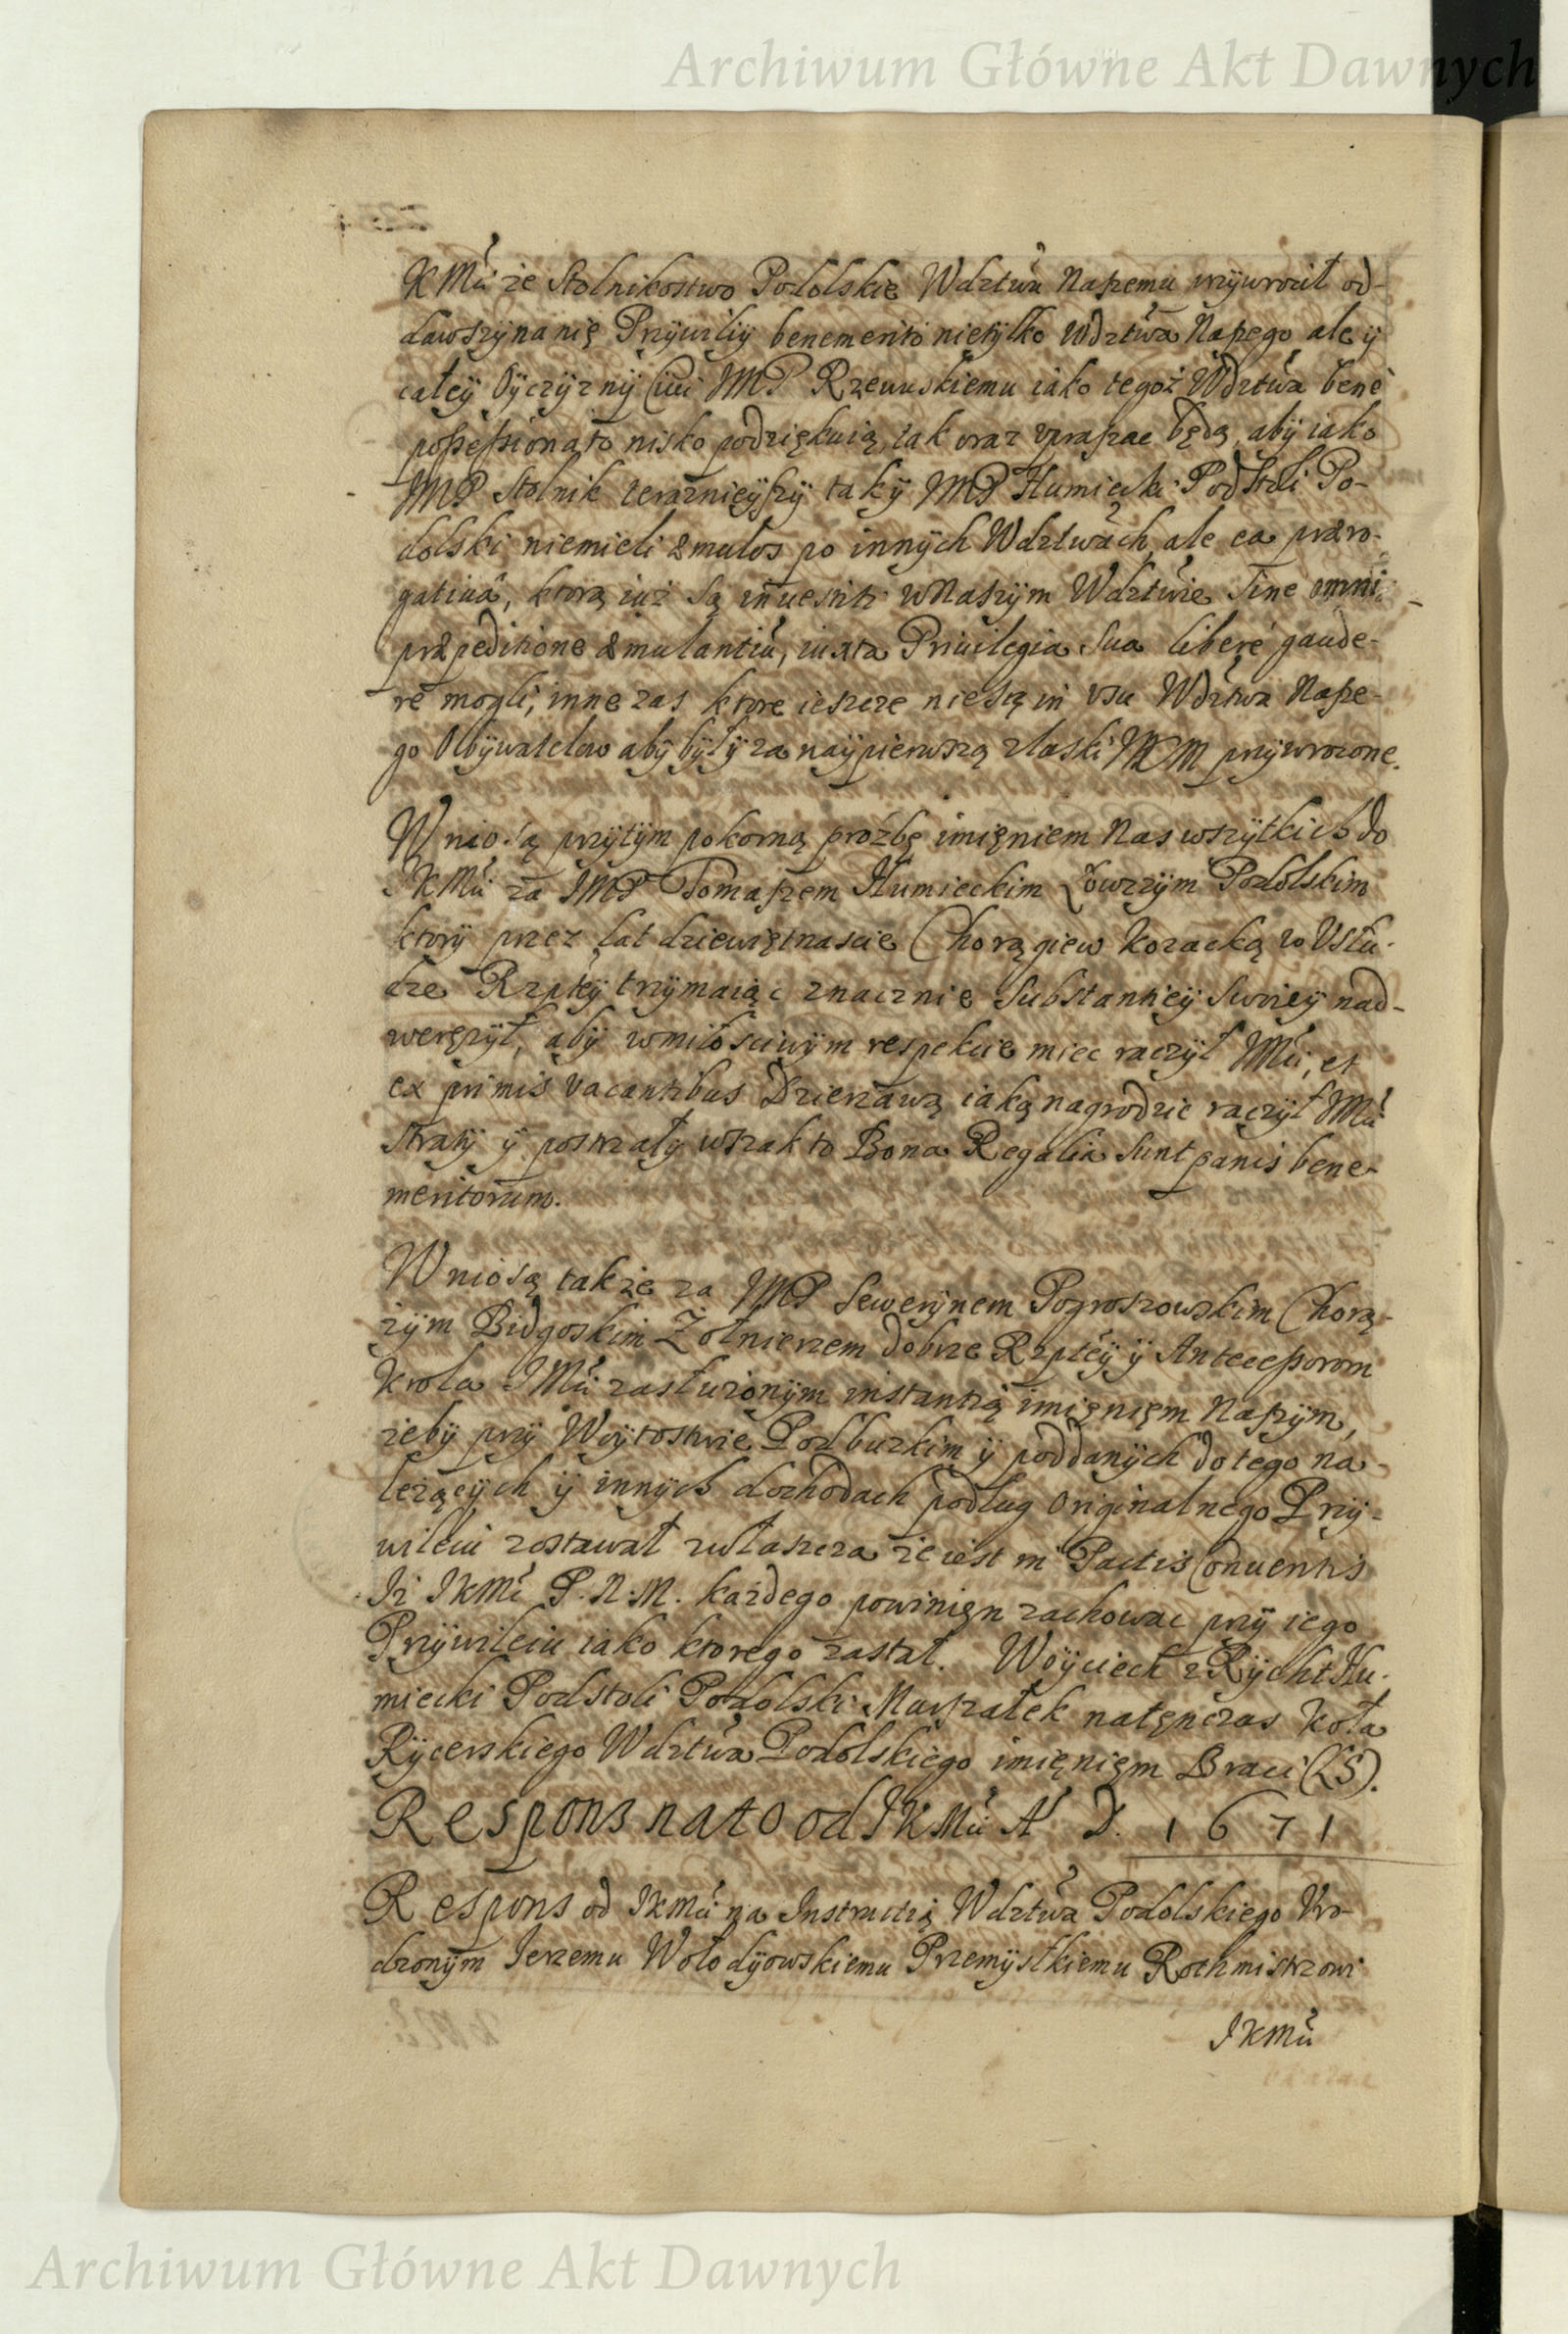 Archiwum Główne Akt Dawnych
KMći że Stolnikostwo Podolskie Wdztwu Naszemu przywrocił od-
dawszy na nię Przywiliy benemerito nietylko Wdztwa Naszego ale ÿ
całeÿ Oyczyznÿ Ciui JMP Rzewuskiemu iako tegoż Wdztwa bene
possessionato nisko podziękuią, tak oraz vpraszac będą, abÿ iako
JMP Stolnik terazniejszÿ tak ÿ JMP Humiecki Podstoli Po-
dolski niemieli æmulos po innÿch Wdztwach, ale ea præro-
gatiua, ktorą iuż są inuestiti w Naszÿm Wdztwie sine omni
præpeditione æmulantiũ, iuxta Priuilegia sua liberé gaude-
re mogli, inne zas ktore ieszcze nie są in vsu Wdztwa Nasze-
go Obÿwatelow abÿ bÿłÿ za naÿpierwszą z łaski JKM przÿwrocone.
Wniosą przÿtÿm pokorną proźbę imięniem Nas wszÿtkich do
JKMći za JMP Tomaszem Humieckim Łowczÿm Podolskim
ktorÿ przez lat dziewiętnascie Chorągiew Kozacką w Vsłu-
dze Rzptey trzÿmaiąc znacznie Substantieÿ Swoieÿ nad-
werężÿł, abÿ w miłosciwÿm respekcie miec raczÿł JMći, et
ex primis vacantibus Dzierzawą iaką nagrodzic raczÿł JMći
stratÿ ÿ postrzałÿ wszak to Bona Regalia sunt panis bene-
meritorum.
Wniosą także za JMP Sewerÿnem Pogroszowskim Chorą-
zÿm Bidgoskim Żołnierzem dobrze Rzpteÿ ÿ Antecessorom
Krola JMći zasłużonÿm instantią imięnięm Naszÿm,
zebÿ przÿ Woÿtostwie Podbuzkim ÿ poddanÿch do tego na-
leżącÿch ÿ innÿch dochodach podług Originalnego Przÿ-
wileiu zostawał zwłaszcza że iest in Pactis Conuentis
Iż JKMć P.N.M. każdego powinięn zachowac przÿ iego
Przÿwileiu iako ktorego zastał. Woÿciech z Rÿcht Hu-
miecki Podstoli Podolski Marszałek natęnczas Koła
Rÿcerskiego Wdztwa Podolskiego imięnięm Braci (LS).
Respons na to od JKMći A D. 1671
Respons od JKMći na Instructią Wdztwa Podolskiego Vro-
dzonÿm Jerzemu Wołodÿowskiemu Przemÿstkiemu Rothmistrzowi
JKMći
Archiwum Główne Akt Dawnych